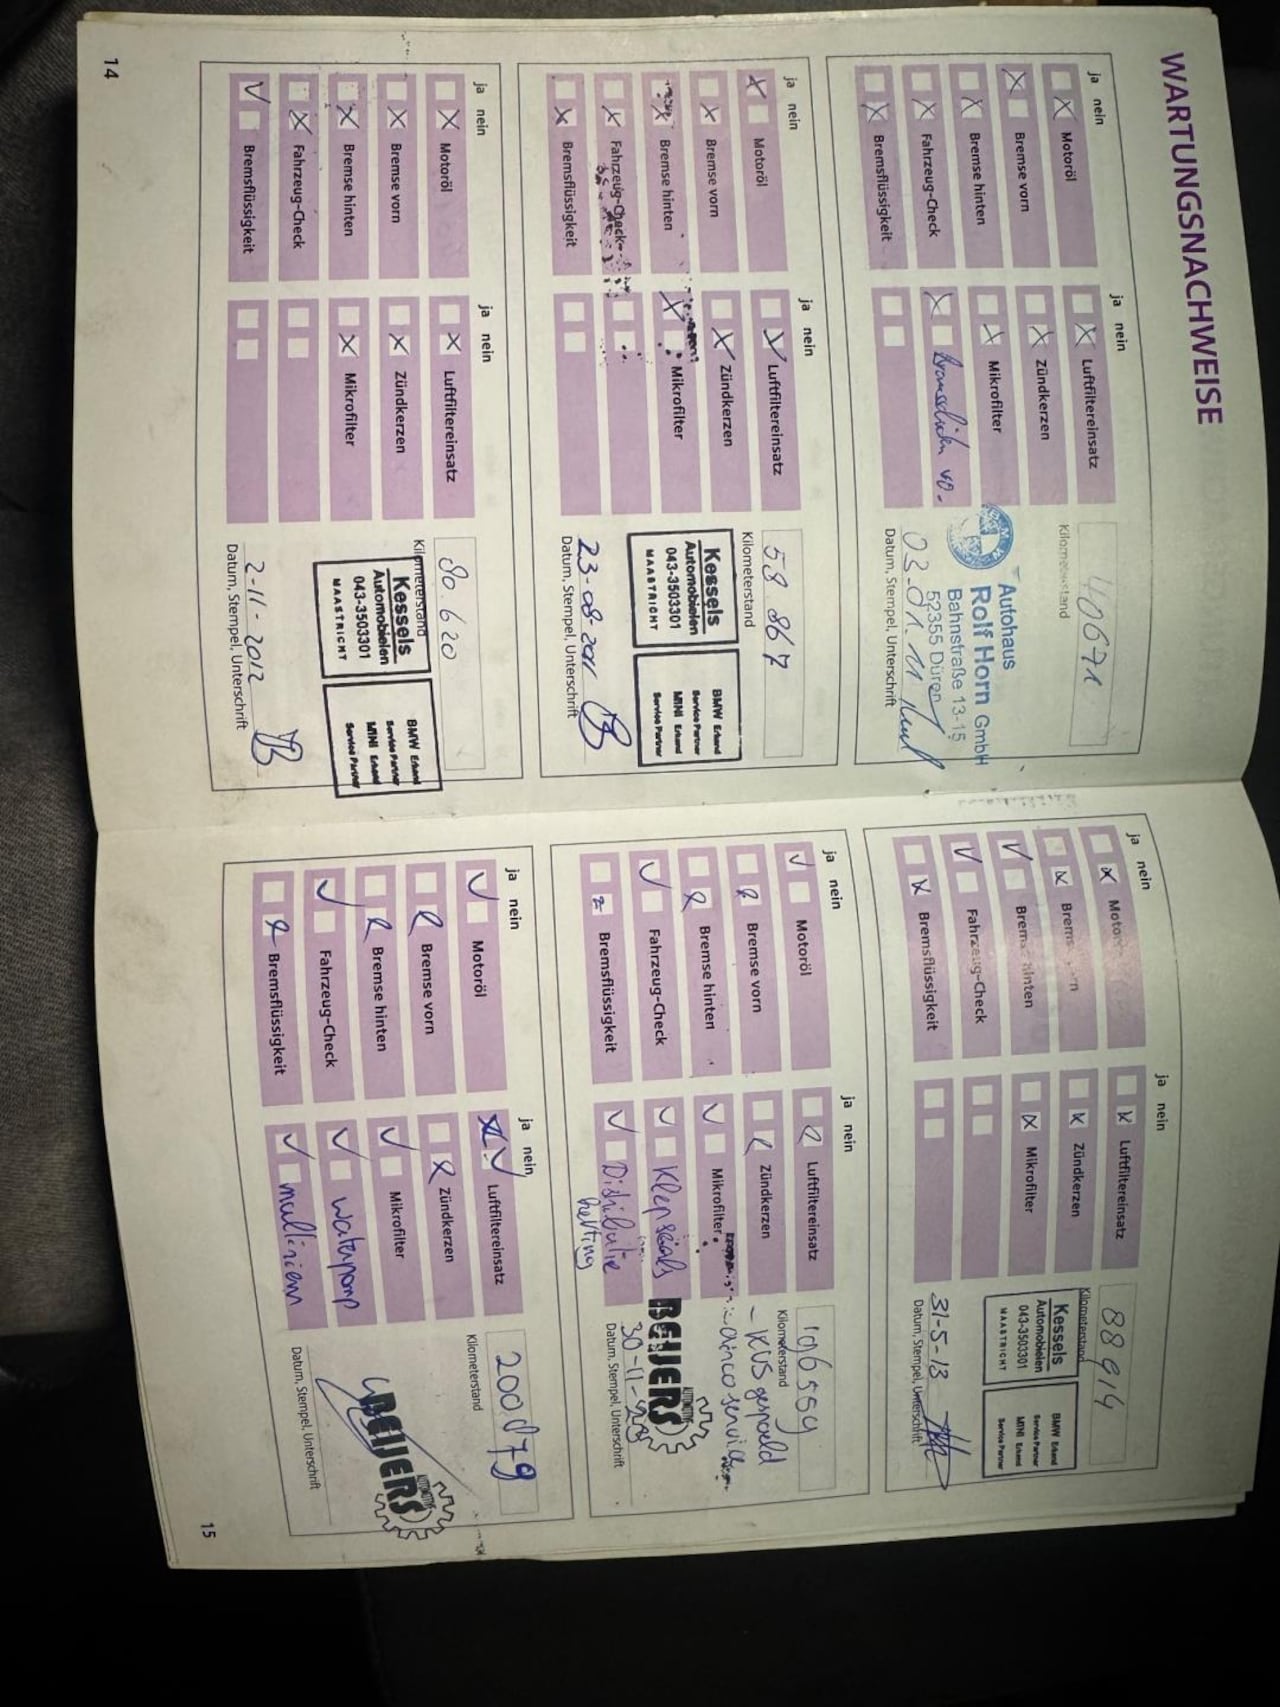 WARTUNGSNACHWEISE
ja nein
Motoröl
Bremse vorn
Bremse hinten
Fahrzeug-Check
Bremsflüssigkeit
ja nein
Luftfiltereinsatz
Zündkerzen
Mikrofilter
Kilometerstand
Autohaus
Rolf Horn GmbH
Bahnstraße 13-15
52355 Düren
Datum, Stempel, Unterschrift
ja nein
Motoröl
Bremse vorn
Bremse hinten
Fahrzeug-Check
Bremsflüssigkeit
ja nein
Luftfiltereinsatz
Zündkerzen
Mikrofilter
58 867
Kilometerstand
Kessels
Automobielen
043-3503301
MAASTRICHT
BMW Erkend
Service Partner
MINI Erkend
Service Partner
23-08-2011
Datum, Stempel, Unterschrift
ja nein
Motoröl
Bremse vorn
Bremse hinten
Fahrzeug-Check
Bremsflüssigkeit
ja nein
Luftfiltereinsatz
Zündkerzen
Mikrofilter
80.620
Kilometerstand
Kessels
Automobielen
043-3503301
MAASTRICHT
BMW Erkend
Service Partner
MINI Erkend
Service Partner
2-11-2012
Datum, Stempel, Unterschrift
14
ja nein
Bremse hinten
Fahrzeug-Check
Bremsflüssigkeit
ja nein
Luftfiltereinsatz
Zündkerzen
Mikrofilter
88914
Kilometerstand
Kessels
Automobielen
043-3503301
MAASTRICHT
BMW Erkend
Service Partner
MINI Erkend
Service Partner
31-5-13
Datum, Stempel, Unterschrift
ja nein
Motoröl
Bremse vorn
Bremse hinten
Fahrzeug-Check
Bremsflüssigkeit
ja nein
Luftfiltereinsatz
Zündkerzen
Mikrofilter
Klepseals
Distributie
ketting
196559
Kilometerstand
- KVS gespoeld
- airco service
BEIJERS
AUTOMOTIVE
Datum, Stempel, Unterschrift
ja nein
Motoröl
Bremse vorn
Bremse hinten
Fahrzeug-Check
Bremsflüssigkeit
ja nein
Luftfiltereinsatz
Zündkerzen
Mikrofilter
waterpomp
multiriem
200879
Kilometerstand
BEIJERS
AUTOMOTIVE
Datum, Stempel, Unterschrift
15